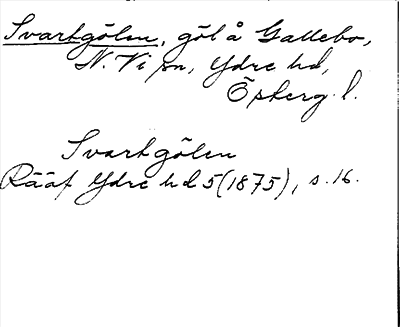 Svartgölen, göl å Gallebo,
N. Vi sn, Ydre hd,
Öpkerg. l.
Svartgölen
Rääf Ydre hd 5 (1875), s. 16.